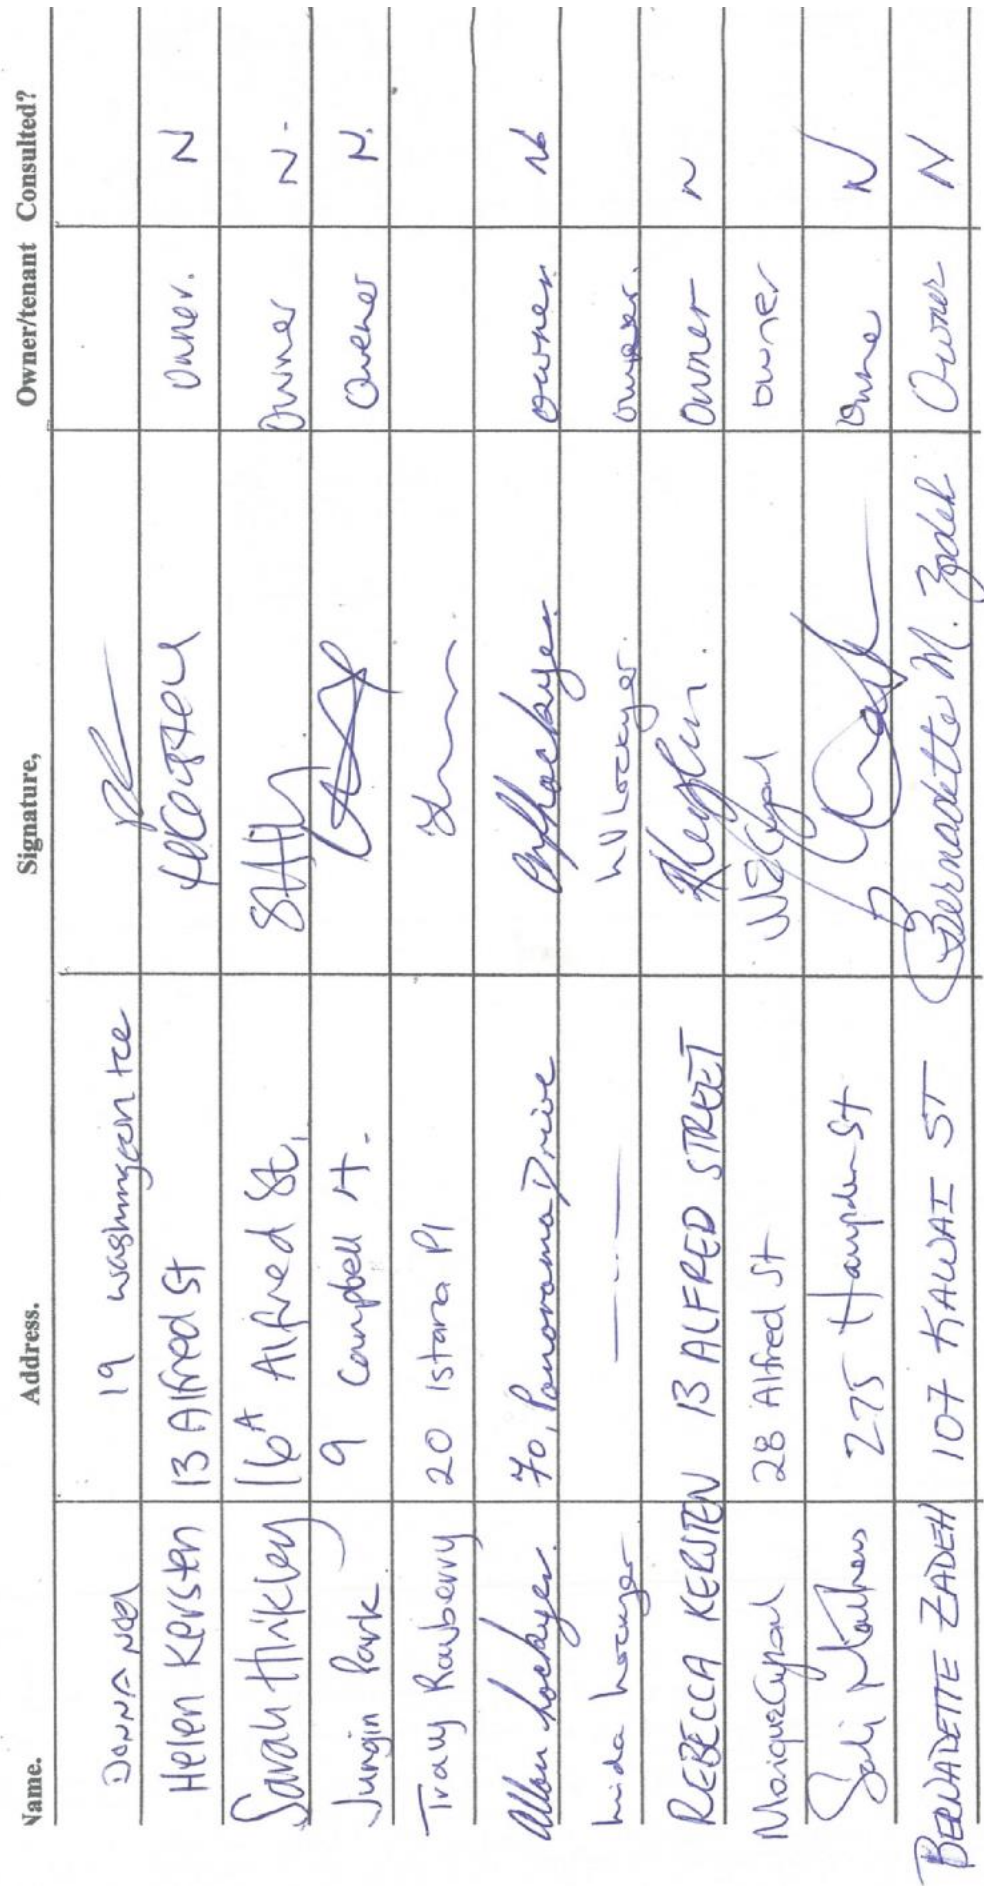 Name. Address. Signature, Owner/tenant Consulted?
DONNA NOEL 19 washington tce
Helen Kersten 13 Alfred St HKersten Owner. N
Sarah Hinkley 16A Alfred St, Owner N-
Jungin Park 9 Campbell st. Owener N.
Tracy 20 Istana Pl
Allan Lockyer. 70, Panorama Drive Lockyer Owner. No
Linda Lockyer — -- — Lockyer. owner.
REBECCA KERSTEN 13 ALFRED STREET Owner N
28 Alfred St owner
275 Hampden St Owne N
BERNADETTE ZADEH 107 KAWAI ST Bernadette M. Zadeh Owner N